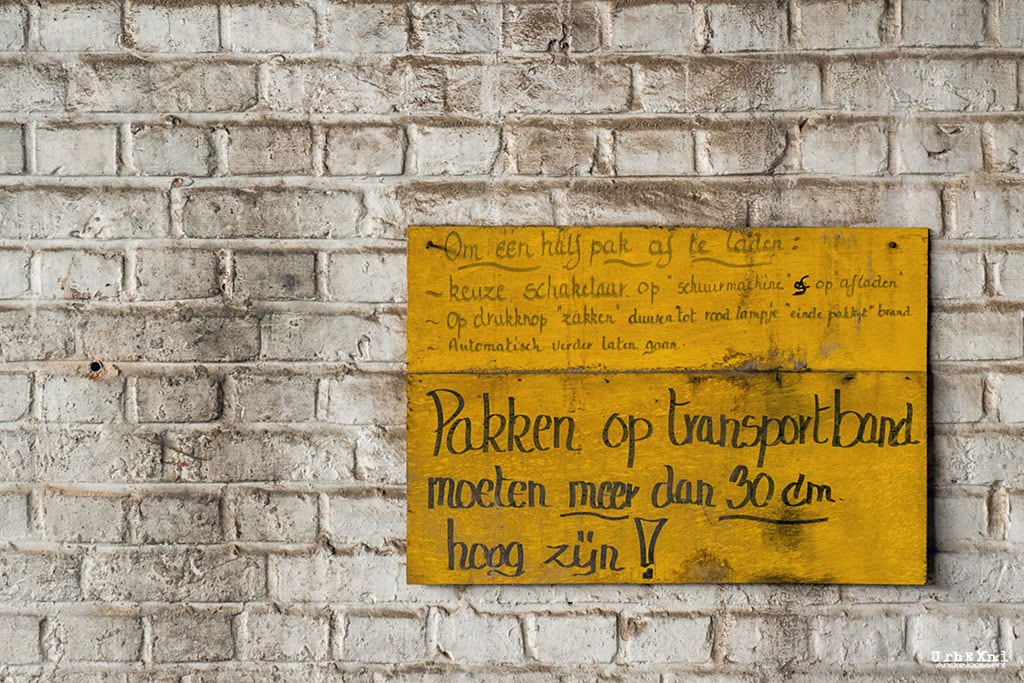 Om een half pak af te laden:
~ keuze schakelaar op "schuurmachine" of op "afladen"
~ Op drukknop "zakken" duwen tot rood lampje "einde pakket" brand
~ Automatisch verder laten gaan.
Pakken op transportband
moeten meer dan 30 cm
hoog zijn!
UrbEXnl